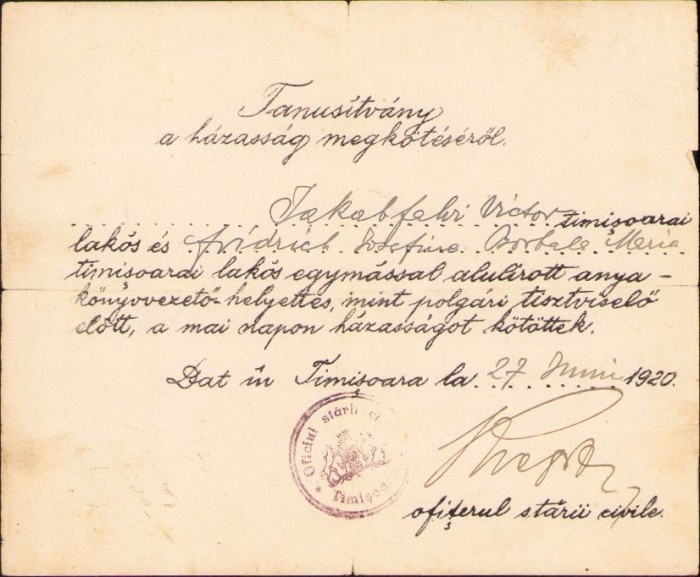 Tanusítvány
a házasság megkötéséről.
Jakabfalvi Victor timișoarai
lakós és Fridrich Josefine Borbala Maria
timisoarai lakós egymással alulírott anya-
könyvvezető-helyettes, mint polgári tisztviselő
előtt, a mai napon házasságot kötöttek.
Dat în Timișoara la 27 Juni 1920.
Oficiul stării ci
Timișoa
ofițerul stării civile.